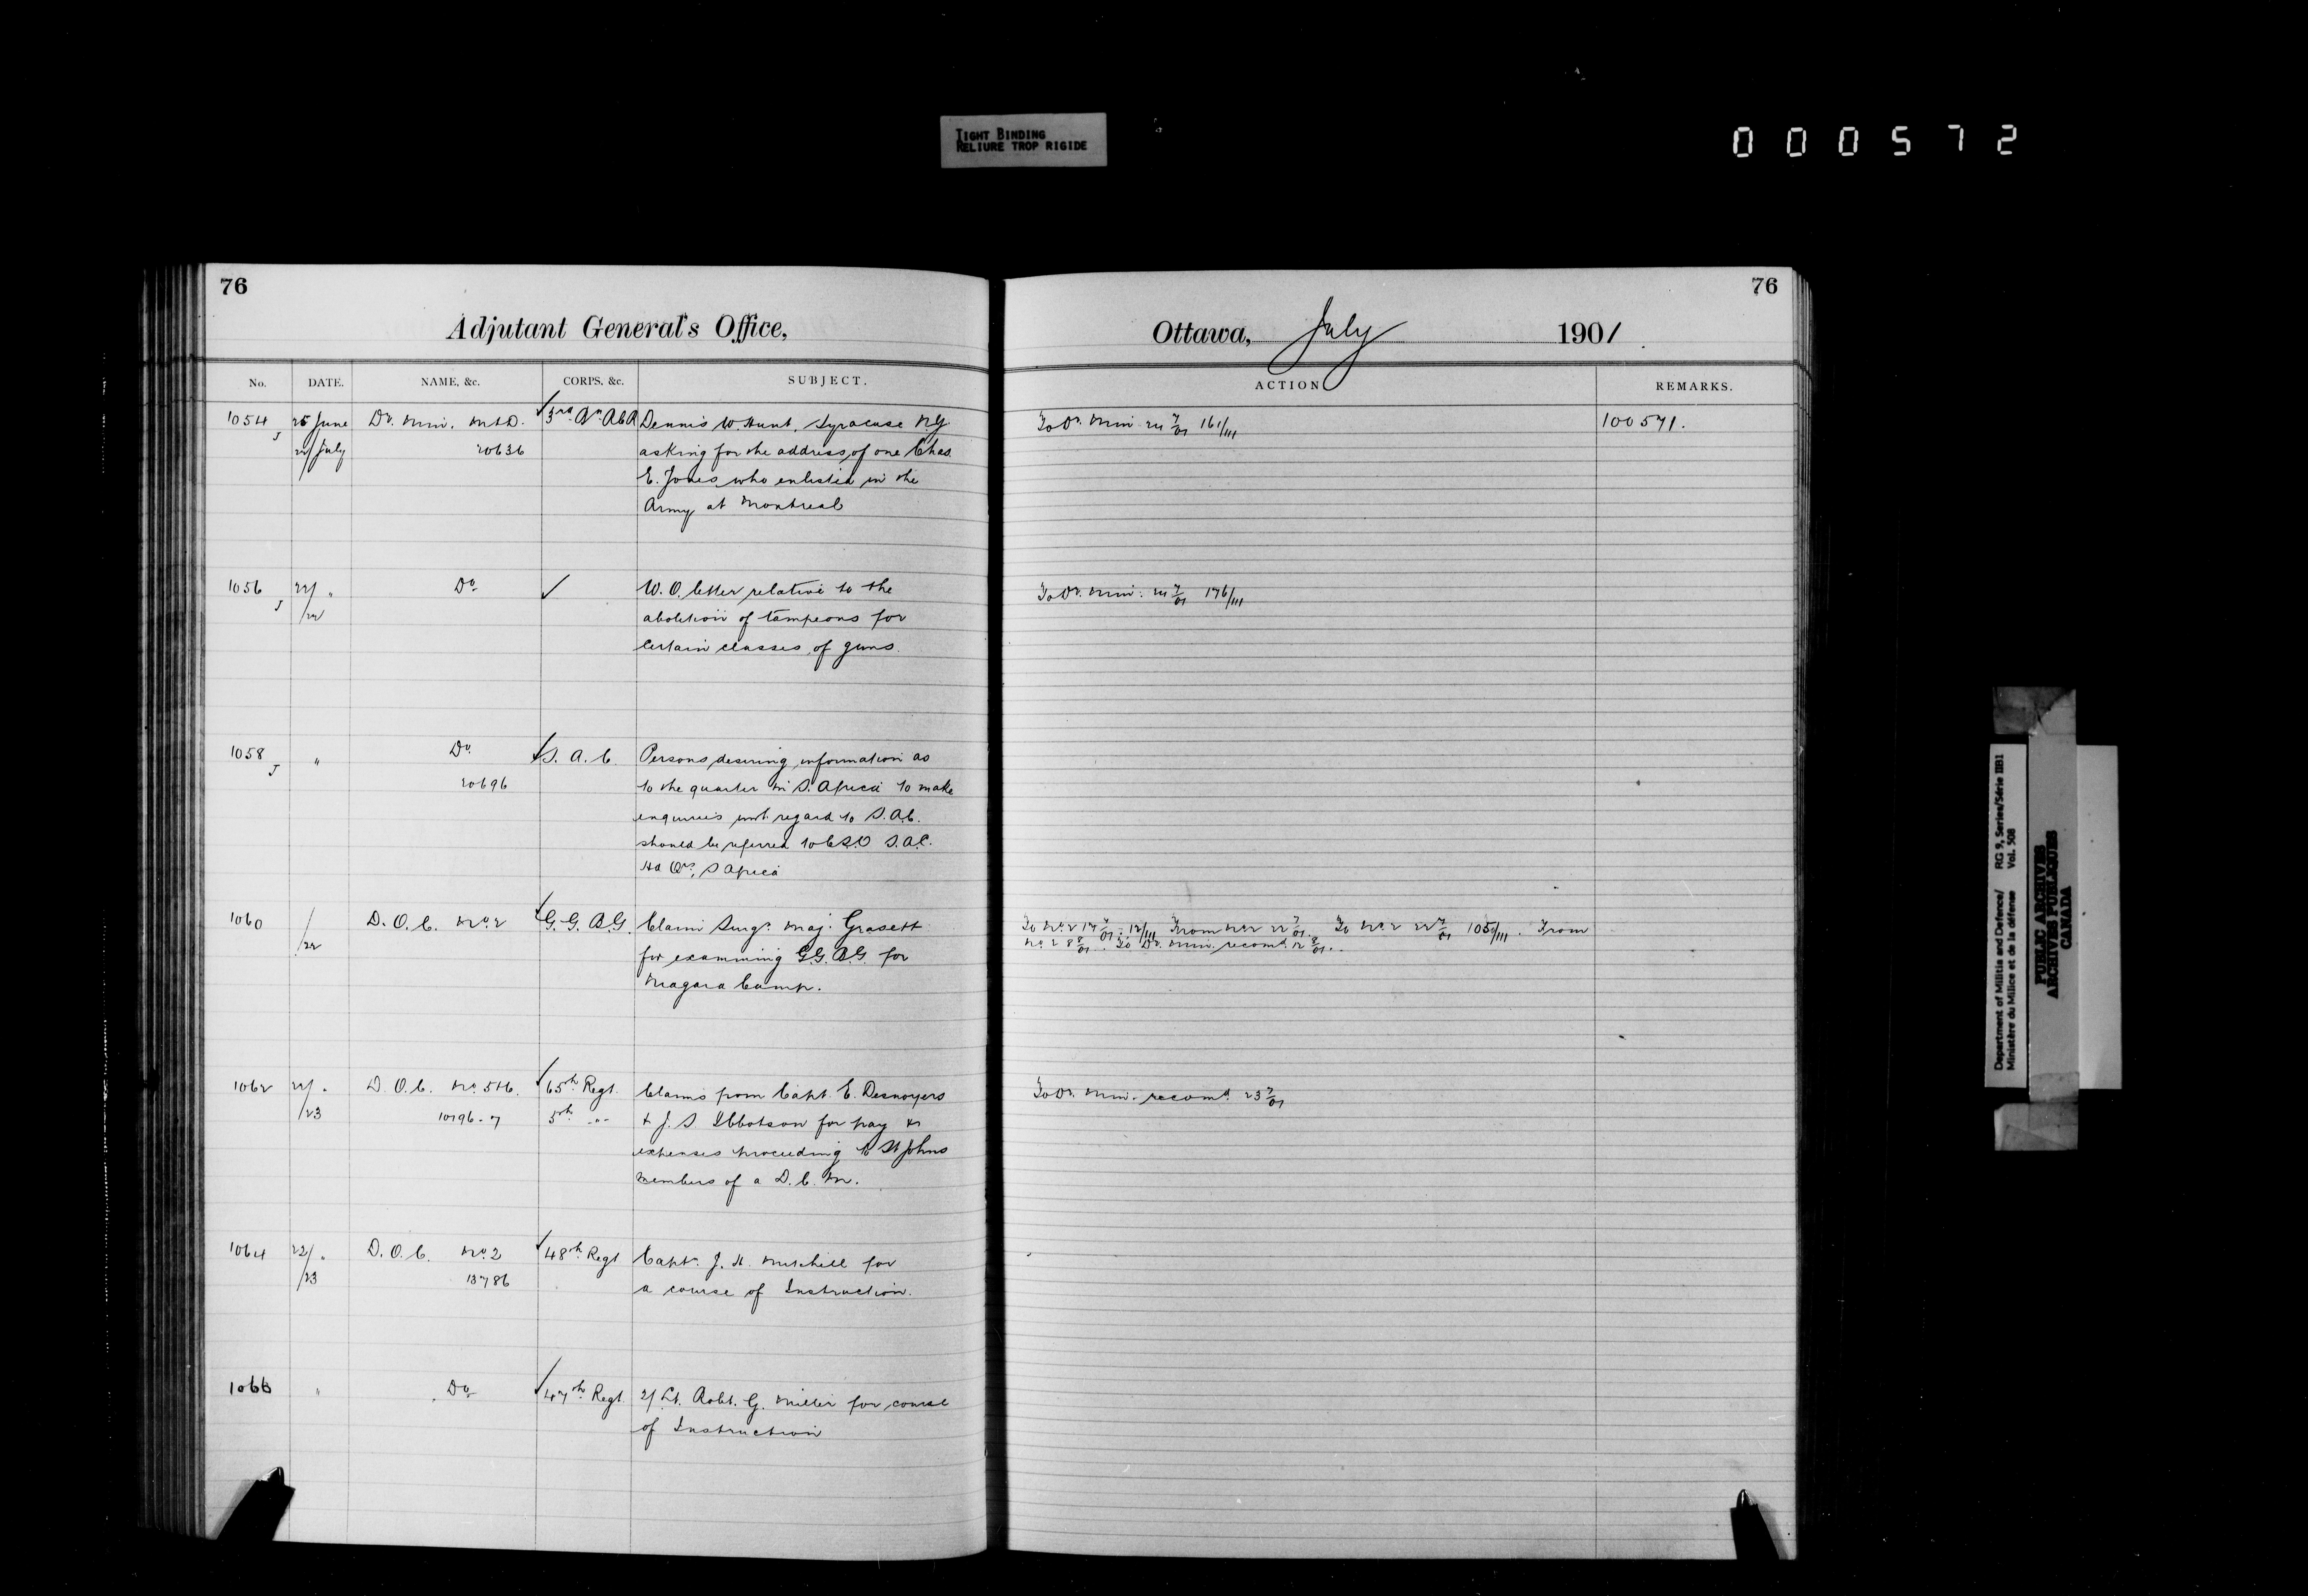 TIGHT BINDING
RELIURE TROP RIGIDE
000572
76
Adjutant General's Office,
No. DATE. NAME, &c. CORPS, &c. SUBJECT.
1054 J 25 June Dy. Min. M&D. 3rd Dennis W. Hunt, Syracuse N.Y.
22/July 20636 asking for the address of one Chas
E. Jones who enlisted in the
Army at Montreal
1056 J 22/ " Do ✓ W.O. letter relative to the
/22 abolition of tampeons for
certain classes of guns.
1058 J " Do ✓ S. A. C. Persons desiring information as
20696 to the quarter in S. Africa to make
enquiries with regard to S.A.C.
should be referred to C.S.O S.A.C.
Hd Qrs, S Africa
1060 / D. O. C. No. 2 ✓ G.G.B.G. Claim Surgn. Maj. Grasett
/22 for examining G.G.B.G. for
Niagara Camp.
1062 22/ " D. O. C. No. 5&6. ✓ 65th Regt. Claims from Capt. E. Desnoyers
/23 10796-7 5th -"- & J. S Ibbotson for pay &
expenses proceeding to St Johns
members of a D. C. M.
1064 22/ " D. O. C. No. 2 ✓ 48th Regt Captn. J. H. Mitchell for
/23 13786 a course of Instruction.
1066 " Do ✓ 47th Regt. 2/Lt. Robt. G. Miller for course
of Instruction
76
Ottawa, July 1901
ACTION REMARKS.
To Dy. Min. 7/01 161/111 100571.
To Dy. Min. 7/01 176/111
To No. 2 17 7/01 12/111 From No. 2 22 7/01. To No. 2 22 7/01 105/111. From
No. 2 8 8/01. To Dy. Min. recomd. 12 8/01.
To Dy. Min. recomd. 23 7/01
Department of Militia and Defence/ RG 9, Series/Série IIB1
Ministère du Milice et de la défense Vol. 508
PUBLIC ARCHIVES
ARCHIVES PUBLIQUES
CANADA